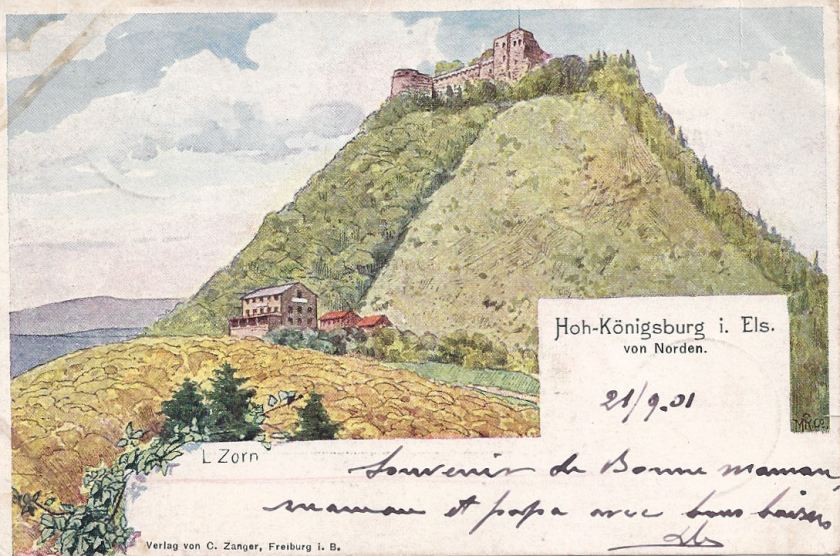 Hoh-Königsburg i. Els.
von Norden.
21/9.01
MRCo
L Zorn
Souvenir de Bonne maman,
maman et papa avec bons baisers
Verlag von C. Zanger, Freiburg i. B.